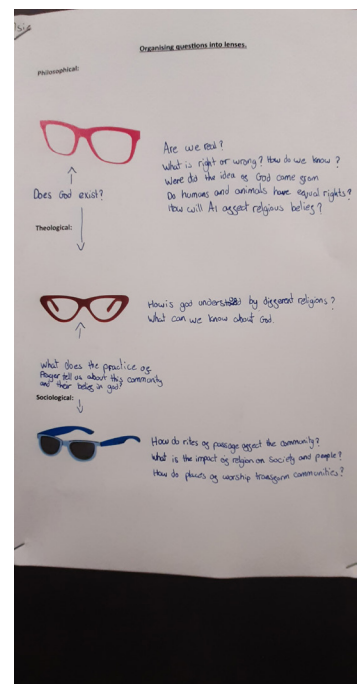 Organising questions into lenses.
Philosophical:
Are we real?
What is right or wrong? How do we know?
Were did the idea of God come from
Do humans and animals have equal rights?
How will AI affect religious belief?
Does God exist?
Theological:
How is god understood by different religions?
What can we know about God.
What does the practice of
Prayer tell us about this community
and their belief in god?
Sociological:
How do rites of passage affect the community?
What is the impact of religion on society and people?
How do places of worship transform communities?